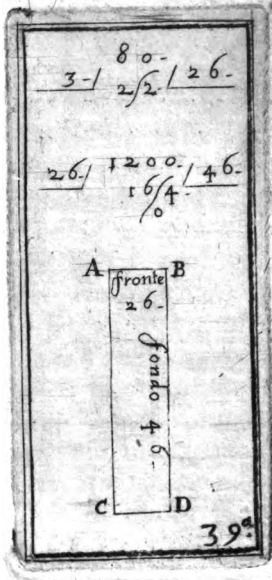 80-
3-/ 2/2- /26-
26-/ 1200- /46-
16/4-
0
A B
fronte
26-
fondo 46-
C D
39ª